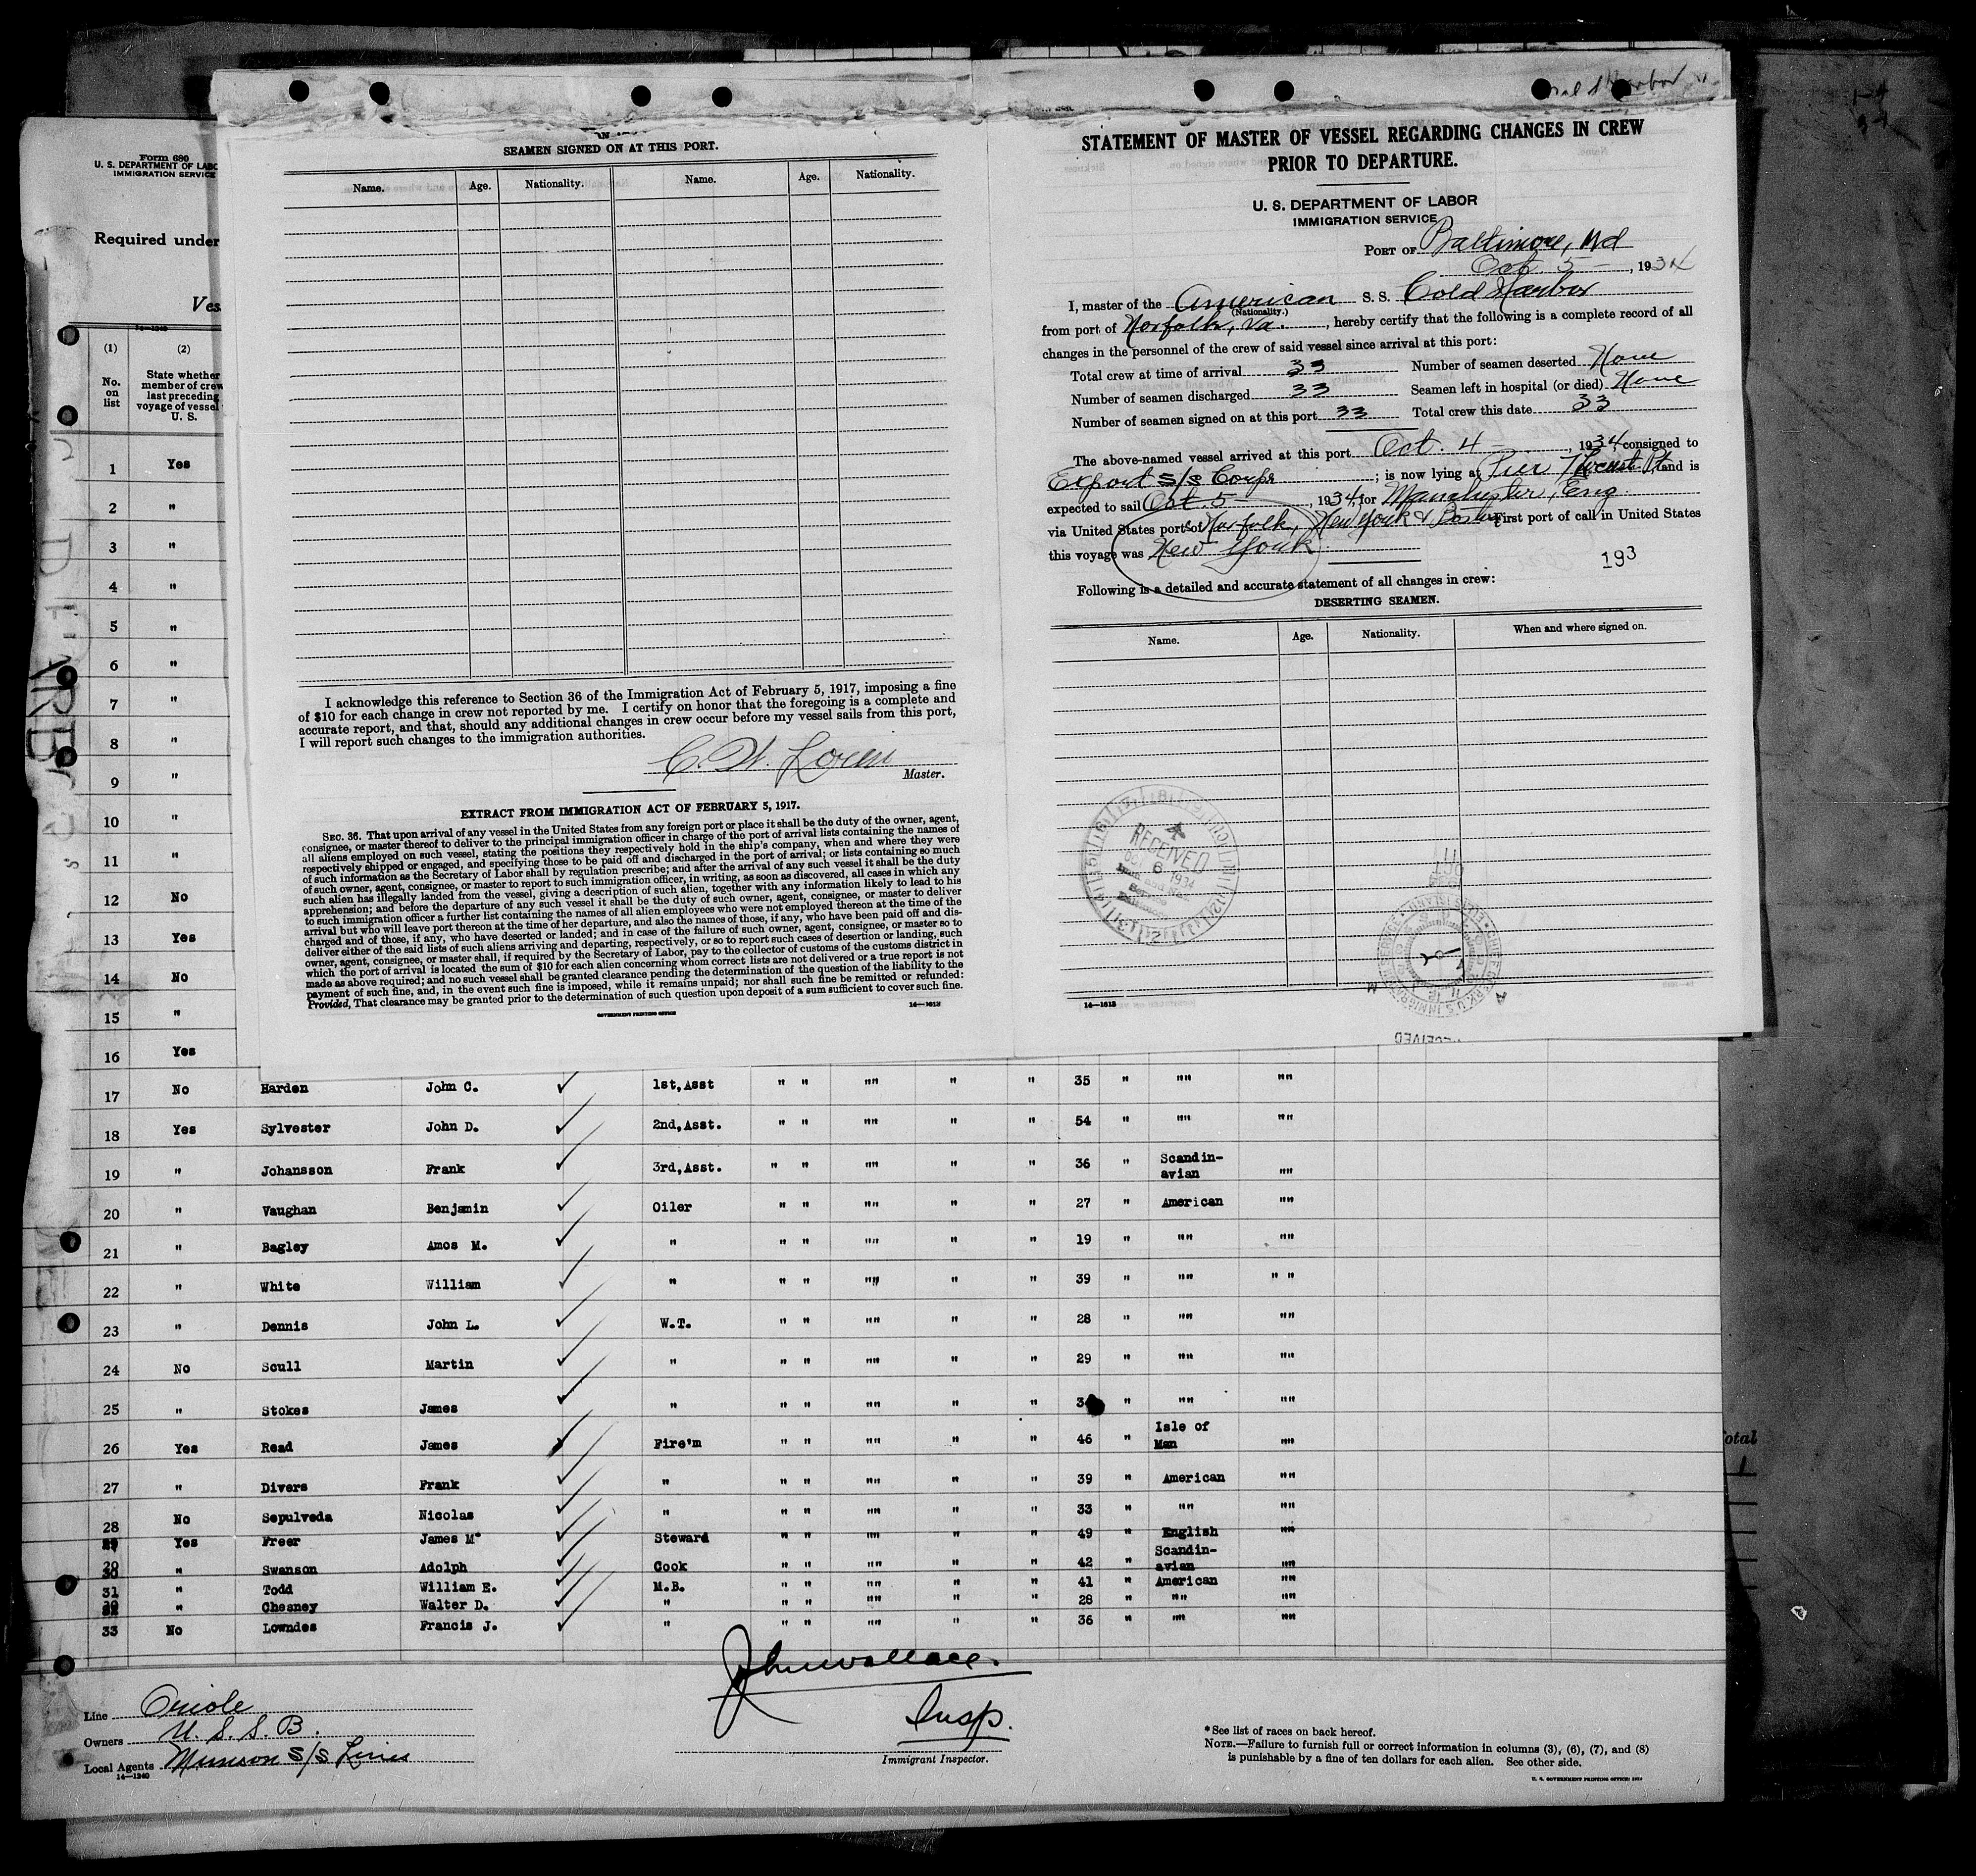 SEAMEN SIGNED ON AT THIS PORT.
Name. Age. Nationality. Name. Age. Nationality.
I acknowledge this reference to Section 36 of the Immigration Act of February 5, 1917, imposing a fine
of $10 for each change in crew not reported by me. I certify on honor that the foregoing is a complete and
accurate report, and that, should any additional changes in crew occur before my vessel sails from this port,
I will report such changes to the immigration authorities.
Master.
EXTRACT FROM IMMIGRATION ACT OF FEBRUARY 5, 1917.
SEC. 36. That upon arrival of any vessel in the United States from any foreign port or place it shall be the duty of the owner, agent,
consignee, or master thereof to deliver to the principal immigration officer in charge of the port of arrival lists containing the names of
all aliens employed on such vessel, stating the positions they respectively hold in the ship's company, when and where they were
respectively shipped or engaged, and specifying those to be paid off and discharged in the port of arrival; or lists containing so much
of such information as the Secretary of Labor shall by regulation prescribe; and after the arrival of any such vessel it shall be the duty
of such owner, agent, consignee, or master to report to such immigration officer, in writing, as soon as discovered, all cases in which any
such alien has illegally landed from the vessel, giving a description of such alien, together with any information likely to lead to his
apprehension; and before the departure of any such vessel it shall be the duty of such owner, agent, consignee, or master to deliver
to such immigration officer a further list containing the names of all alien employees who were not employed thereon at the time of the
arrival but who will leave port thereon at the time of her departure, and also the names of those, if any, who have been paid off and dis-
charged and of those, if any, who have deserted or landed; and in case of the failure of such owner, agent, consignee, or master so to
deliver either of the said lists of such aliens arriving and departing, respectively, or so to report such cases of desertion or landing, such
owner, agent, consignee, or master shall, if required by the Secretary of Labor, pay to the collector of customs of the customs district in
which the port of arrival is located the sum of $10 for each alien concerning whom correct lists are not delivered or a true report is not
made as above required; and no such vessel shall be granted clearance pending the determination of the question of the liability to the
payment of such fine, and, in the event such fine is imposed, while it remains unpaid; nor shall such fine be remitted or refunded:
Provided, That clearance may be granted prior to the determination of such question upon deposit of a sum sufficient to cover such fine.
GOVERNMENT PRINTING OFFICE 14—1613
STATEMENT OF MASTER OF VESSEL REGARDING CHANGES IN CREW
PRIOR TO DEPARTURE.
U. S. DEPARTMENT OF LABOR
IMMIGRATION SERVICE
PORT OF Baltimore, Md
Oct 5 , 1934
I, master of the American S. S. Cold Harbor
(Nationality.)
from port of Norfolk, Va. , hereby certify that the following is a complete record of all
changes in the personnel of the crew of said vessel since arrival at this port:
Total crew at time of arrival 33 Number of seamen deserted None
Number of seamen discharged 33 Seamen left in hospital (or died) None
Number of seamen signed on at this port 33 Total crew this date 33
The above-named vessel arrived at this port Oct. 4 , 1934 consigned to
Export S/S Corps ; is now lying at Pier 7 Locust Pt, and is
expected to sail Oct. 5 , 1934, for Manchester, Eng.
via United States ports of Norfolk, New York & Boston First port of call in United States
this voyage was New York
193
Following is a detailed and accurate statement of all changes in crew:
DESERTING SEAMEN.
Name. Age. Nationality. When and where signed on.
RECEIVED
6 1934
14—1613
RECEIVED
Form 680
U. S. DEPARTMENT OF LABO
IMMIGRATION SERVICE
Required under
Ves
14—1240
(1) (2)
No. on list
State whether member of crew last preceding voyage of vessel U. S.
1 Yes
2 "
3 "
4 "
5 "
6 "
7 "
8 "
9 "
10 "
11 "
12 No
13 Yes
14 No
15 "
16 Yes
17 No Harden John C. 1st,Asst " " "" " " 35 " "" ""
18 Yes Sylvester John D. 2nd,Asst. " " "" " " 54 " "" ""
19 " Johansson Frank 3rd,Asst. " " "" " " 36 " Scandin-avian ""
20 " Vaughan Benjamin Oiler " " "" " " 27 " American ""
21 " Bagley Amos M. " " " "" " " 19 " "" ""
22 " White William " " " "" " " 39 " "" " "
23 " Dennis John L. W.T. " " "" " " 28 " "" ""
24 No Scull Martin " " " "" " " 29 " "" ""
25 " Stokes James " " " "" " " 3 " "" ""
26 Yes Read James Fire'm " " "" " " 46 " Isle of Man ""
27 " Divers Frank " " " "" " " 39 " American ""
28 No Sepulveda Nicolas " " " "" " " 33 " "" ""
29 Yes Freer James Mc Steward " " "" " " 49 " English ""
30 " Swanson Adolph Cook " " "" " " 42 " Scandin-avian ""
31 " Todd William E. M.B. " " "" " " 41 " American ""
32 " Chesney Walter D. " " " "" " " 28 " "" ""
33 No Lowndes Francis J. " " " "" " " 36 " "" ""
Line Oriole
Owners U. S. S. B.
Local Agents Munson S/S Lines
14—1240
John Wallace.
Insp.
Immigrant Inspector.
*See list of races on back hereof.
NOTE.—Failure to furnish full or correct information in columns (3), (6), (7), and (8)
is punishable by a fine of ten dollars for each alien. See other side.
U. S. GOVERNMENT PRINTING OFFICE:
otal